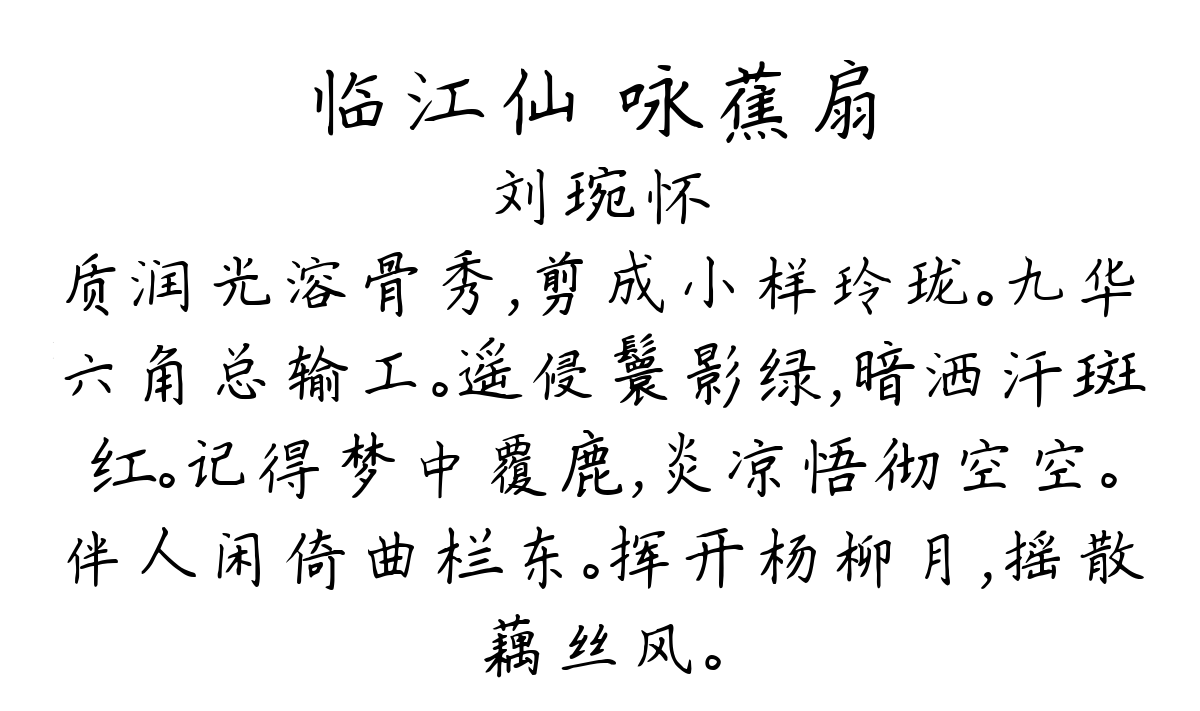 临江仙 咏蕉扇
刘琬怀
质润光溶骨秀,剪成小样玲珑。九华
六角总输工。遥侵鬟影绿,暗洒汗斑
红。记得梦中覆鹿,炎凉悟彻空空。
伴人闲倚曲栏东。挥开杨柳月,摇散
藕丝风。